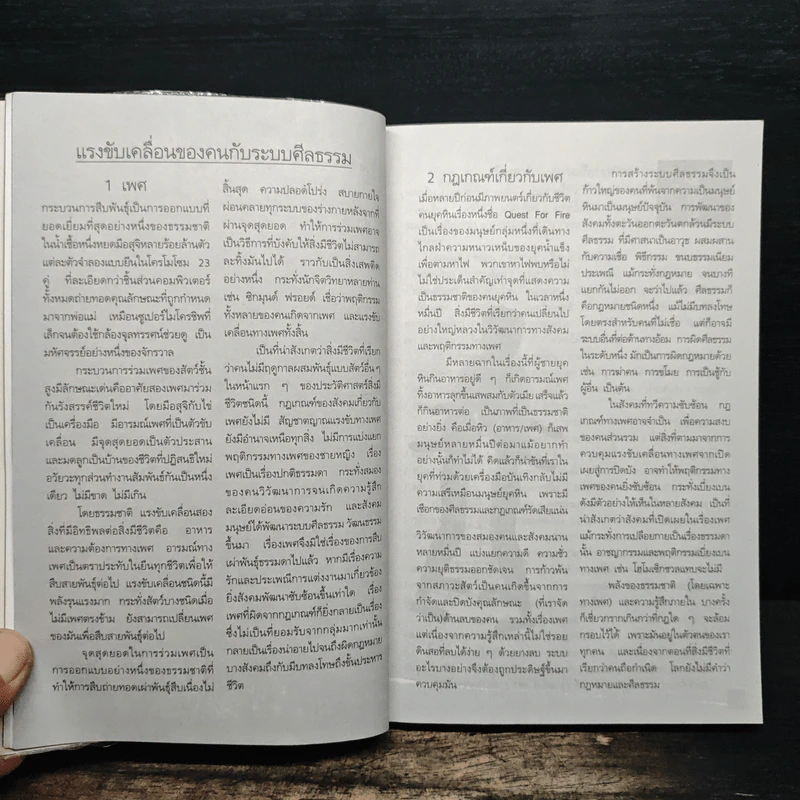 แรงขับเคลื่อนของคนกับระบบศีลธรรม
1 เพศ
กระบวนการสืบพันธุ์เป็นการออกแบบที่
ยอดเยี่ยมที่สุดอย่างหนึ่งของธรรมชาติ
ในน้ำเชื้อหนึ่งหยดมีอสุจิหลายร้อยล้านตัว
แต่ละตัวจำลองแบบยีนในโครโมโซม 23
คู่ ที่ละเอียดกว่าชิ้นส่วนคอมพิวเตอร์
ทั้งหมดถ่ายทอดคุณลักษณะที่ถูกกำหนด
มาจากพ่อแม่ เหมือนซูเปอร์ไมโครชิพที่
เล็กจนต้องใช้กล้องจุลทรรศน์ช่วยดู เป็น
มหัศจรรย์อย่างหนึ่งของจักรวาล
กระบวนการร่วมเพศของสัตว์ชั้น
สูงมีลักษณะเด่นคืออาศัยสองเพศมาร่วม
กันรังสรรค์ชีวิตใหม่ โดยมีอสุจิกับไข่
เป็นเครื่องมือ มีอารมณ์เพศที่เป็นตัวขับ
เคลื่อน มีจุดสุดยอดเป็นตัวประสาน
และมดลูกเป็นบ้านของชีวิตที่ปฏิสนธิใหม่
อวัยวะทุกส่วนทำงานสัมพันธ์กันเป็นหนึ่ง
เดียว ไม่มีขาด ไม่มีเกิน
โดยธรรมชาติ แรงขับเคลื่อนสอง
สิ่งที่มีอิทธิพลต่อสิ่งมีชีวิตคือ อาหาร
และความต้องการทางเพศ อารมณ์ทาง
เพศเป็นตราประทับในยีนทุกชีวิตเพื่อให้
สืบสายพันธุ์ต่อไป แรงขับเคลื่อนชนิดนี้มี
พลังรุนแรงมาก กระทั่งสัตว์บางชนิดเมื่อ
ไม่มีเพศตรงข้าม ยังสามารถเปลี่ยนเพศ
ของมันเพื่อสืบสายพันธุ์ต่อไป
จุดสุดยอดในการร่วมเพศเป็น
การออกแบบอย่างหนึ่งของธรรมชาติที่
ทำให้การสืบถ่ายทอดเผ่าพันธุ์สืบเนื่องไม่
สิ้นสุด ความปลอดโปร่ง สบายกายใจ
ผ่อนคลายทุกระบบของร่างกายหลังจากที่
ผ่านจุดสุดยอด ทำให้การร่วมเพศอาจ
เป็นวิธีการที่บังคับให้สิ่งมีชีวิตไม่สามารถ
ละทิ้งมันไปได้ ราวกับเป็นสิ่งเสพติด
อย่างหนึ่ง กระทั่งนักจิตวิทยาหลายท่าน
เช่น ซิกมุนด์ ฟรอยด์ เชื่อว่าพฤติกรรม
ทั้งหลายของคนเกิดจากเพศ และแรงขับ
เคลื่อนทางเพศทั้งสิ้น
เป็นที่น่าสังเกตว่าสิ่งมีชีวิตที่เรียก
ว่าคนไม่มีฤดูกาลผสมพันธุ์แบบสัตว์อื่นๆ
ในหน้าแรก ๆ ของประวัติศาสตร์สิ่งมี
ชีวิตชนิดนี้ กฎเกณฑ์ของสังคมเกี่ยวกับ
เพศยังไม่มี สัญชาตญาณแรงขับทางเพศ
ยังมีอำนาจเหนือทุกสิ่ง ไม่มีการแบ่งแยก
พฤติกรรมทางเพศของชายหญิง เรื่อง
เพศเป็นเรื่องปกติธรรมดา กระทั่งสมอง
ของคนวิวัฒนาการจนเกิดความรู้สึก
ละเอียดอ่อนของความรัก และสังคม
มนุษย์ได้พัฒนาระบบศีลธรรม วัฒนธรรม
ขึ้นมา เรื่องเพศจึงมิใช่เรื่องของการสืบ
เผ่าพันธุ์ธรรมดาไปแล้ว หากมีเรื่องความ
รักและประเพณีการแต่งงานมาเกี่ยวข้อง
ยิ่งสังคมพัฒนาซับซ้อนขึ้นเท่าใด เรื่อง
เพศที่ผิดจากกฎเกณฑ์ก็ยิ่งกลายเป็นเรื่อง
ซึ่งไม่เป็นที่ยอมรับจากกลุ่มมากเท่านั้น
กลายเป็นเรื่องน่าอายไปจนถึงผิดกฎหมาย
บางสังคมถึงกับมีบทลงโทษถึงขั้นประหาร
ชีวิต
2 กฎเกณฑ์เกี่ยวกับเพศ
เมื่อหลายปีก่อนมีภาพยนตร์เกี่ยวกับชีวิต
คนยุคหินเรื่องหนึ่งชื่อ Quest For Fire
เป็นเรื่องของมนุษย์กลุ่มหนึ่งที่เดินทาง
ไกลฝ่าความหนาวเหน็บของยุคน้ำแข็ง
เพื่อตามหาไฟ พวกเขาหาไฟพบหรือไม่
ไม่ใช่ประเด็นสำคัญเท่าจุดที่แสดงความ
เป็นธรรมชาติของคนยุคหิน ในเวลาหนึ่ง
หมื่นปี สิ่งมีชีวิตที่เรียกว่าคนเปลี่ยนไป
อย่างใหญ่หลวงในวิวัฒนาการทางสังคม
และพฤติกรรมทางเพศ
มีหลายฉากในเรื่องนี้ที่ผู้ชายยุค
หินกินอาหารอยู่ดี ๆ ก็เกิดอารมณ์เพศ
ทิ้งอาหารลุกขึ้นเสพสมกับตัวเมีย เสร็จแล้ว
ก็กินอาหารต่อ เป็นภาพที่เป็นธรรมชาติ
อย่างยิ่ง คือเมื่อหิว (อาหาร/เพศ) ก็เสพ
มนุษย์หลายหมื่นปีต่อมาแม้อยากทำ
อย่างนั้นก็ทำไม่ได้ คิดแล้วก็น่าขันที่เราใน
ยุคที่ท่วมด้วยเครื่องมือบันเทิงกลับไม่มี
ความเสรีเหมือนมนุษย์ยุคหิน เพราะมี
เชือกของศีลธรรมและกฎเกณฑ์รัดเสียแน่น
วิวัฒนาการของสมองคนและสังคมนาน
หลายหมื่นปี แบ่งแยกความดี ความชั่ว
ความยุติธรรมออกชัดเจน การก้าวพ้น
จากสภาวะสัตว์เป็นคนเกิดขึ้นจากการ
กำจัดและปิดบังคุณลักษณะ (ที่เราจัด
ว่าเป็น)ด้านลบของคน รวมทั้งเรื่องเพศ
แต่เนื่องจากความรู้สึกเหล่านี้ไม่ใช่รอย
ดินสอที่ลบได้ง่าย ๆ ด้วยยางลบ ระบบ
อะไรบางอย่างจึงต้องถูกประดิษฐ์ขึ้นมา
ควบคุมมัน
การสร้างระบบศีลธรรมจึงเป็น
ก้าวใหญ่ของคนที่พ้นจากความเป็นมนุษย์
หินมาเป็นมนุษย์ปัจจุบัน การพัฒนาของ
สังคมทั้งตะวันออกตะวันตกล้วนมีระบบ
ศีลธรรม ที่มีศาสนาเป็นอาวุธ ผสมผสาน
กับความเชื่อ พิธีกรรม ขนบธรรมเนียม
ประเพณี แม้กระทั่งกฎหมาย จนบางที
แยกกันไม่ออก จะว่าไปแล้ว ศีลธรรมก็
คือกฎหมายชนิดหนึ่ง แม้ไม่มีบทลงโทษ
โดยตรงสำหรับคนที่ไม่เชื่อ แต่ก็อาจมี
ระบบอื่นที่ต่อต้านทางอ้อม การผิดศีลธรรม
ในระดับหนึ่ง มักเป็นการผิดกฎหมายด้วย
เช่น การฆ่าคน การขโมย การเป็นชู้กับ
ผู้อื่น เป็นต้น
ในสังคมที่ทวีความซับซ้อน กฎ
เกณฑ์ทางเพศอาจจำเป็น เพื่อความสงบ
ของคนส่วนรวม แต่สิ่งที่ตามมาจากการ
ควบคุมแรงขับเคลื่อนทางเพศจากเปิด
เผยสู่การปิดบัง อาจทำให้พฤติกรรมทาง
เพศของคนยิ่งซับซ้อน กระทั่งเบี่ยงเบน
ดังมีตัวอย่างให้เห็นในหลายสังคม เป็นที่
น่าสังเกตว่าสังคมที่เปิดเผยในเรื่องเพศ
แม้กระทั่งการเปลือยกายเป็นเรื่องธรรมดา
นั้น อาชญากรรมและพฤติกรรมเบี่ยงเบน
ทางเพศ เช่น โฮโมเซ็กชวลแทบจะไม่มี
พลังของธรรมชาติ (โดยเฉพาะ
ทางเพศ) และความรู้สึกภายใน บางครั้ง
ก็เชี่ยวกรากเกินกว่าที่กฎใด ๆ จะล้อม
กรอบไว้ได้ เพราะมันอยู่ในตัวตนของเรา
ทุกคน และเนื่องจากตอนที่สิ่งมีชีวิตที่
เรียกว่าคนถือกำเนิด โลกยังไม่มีคำว่า
กฎหมายและศีลธรรม